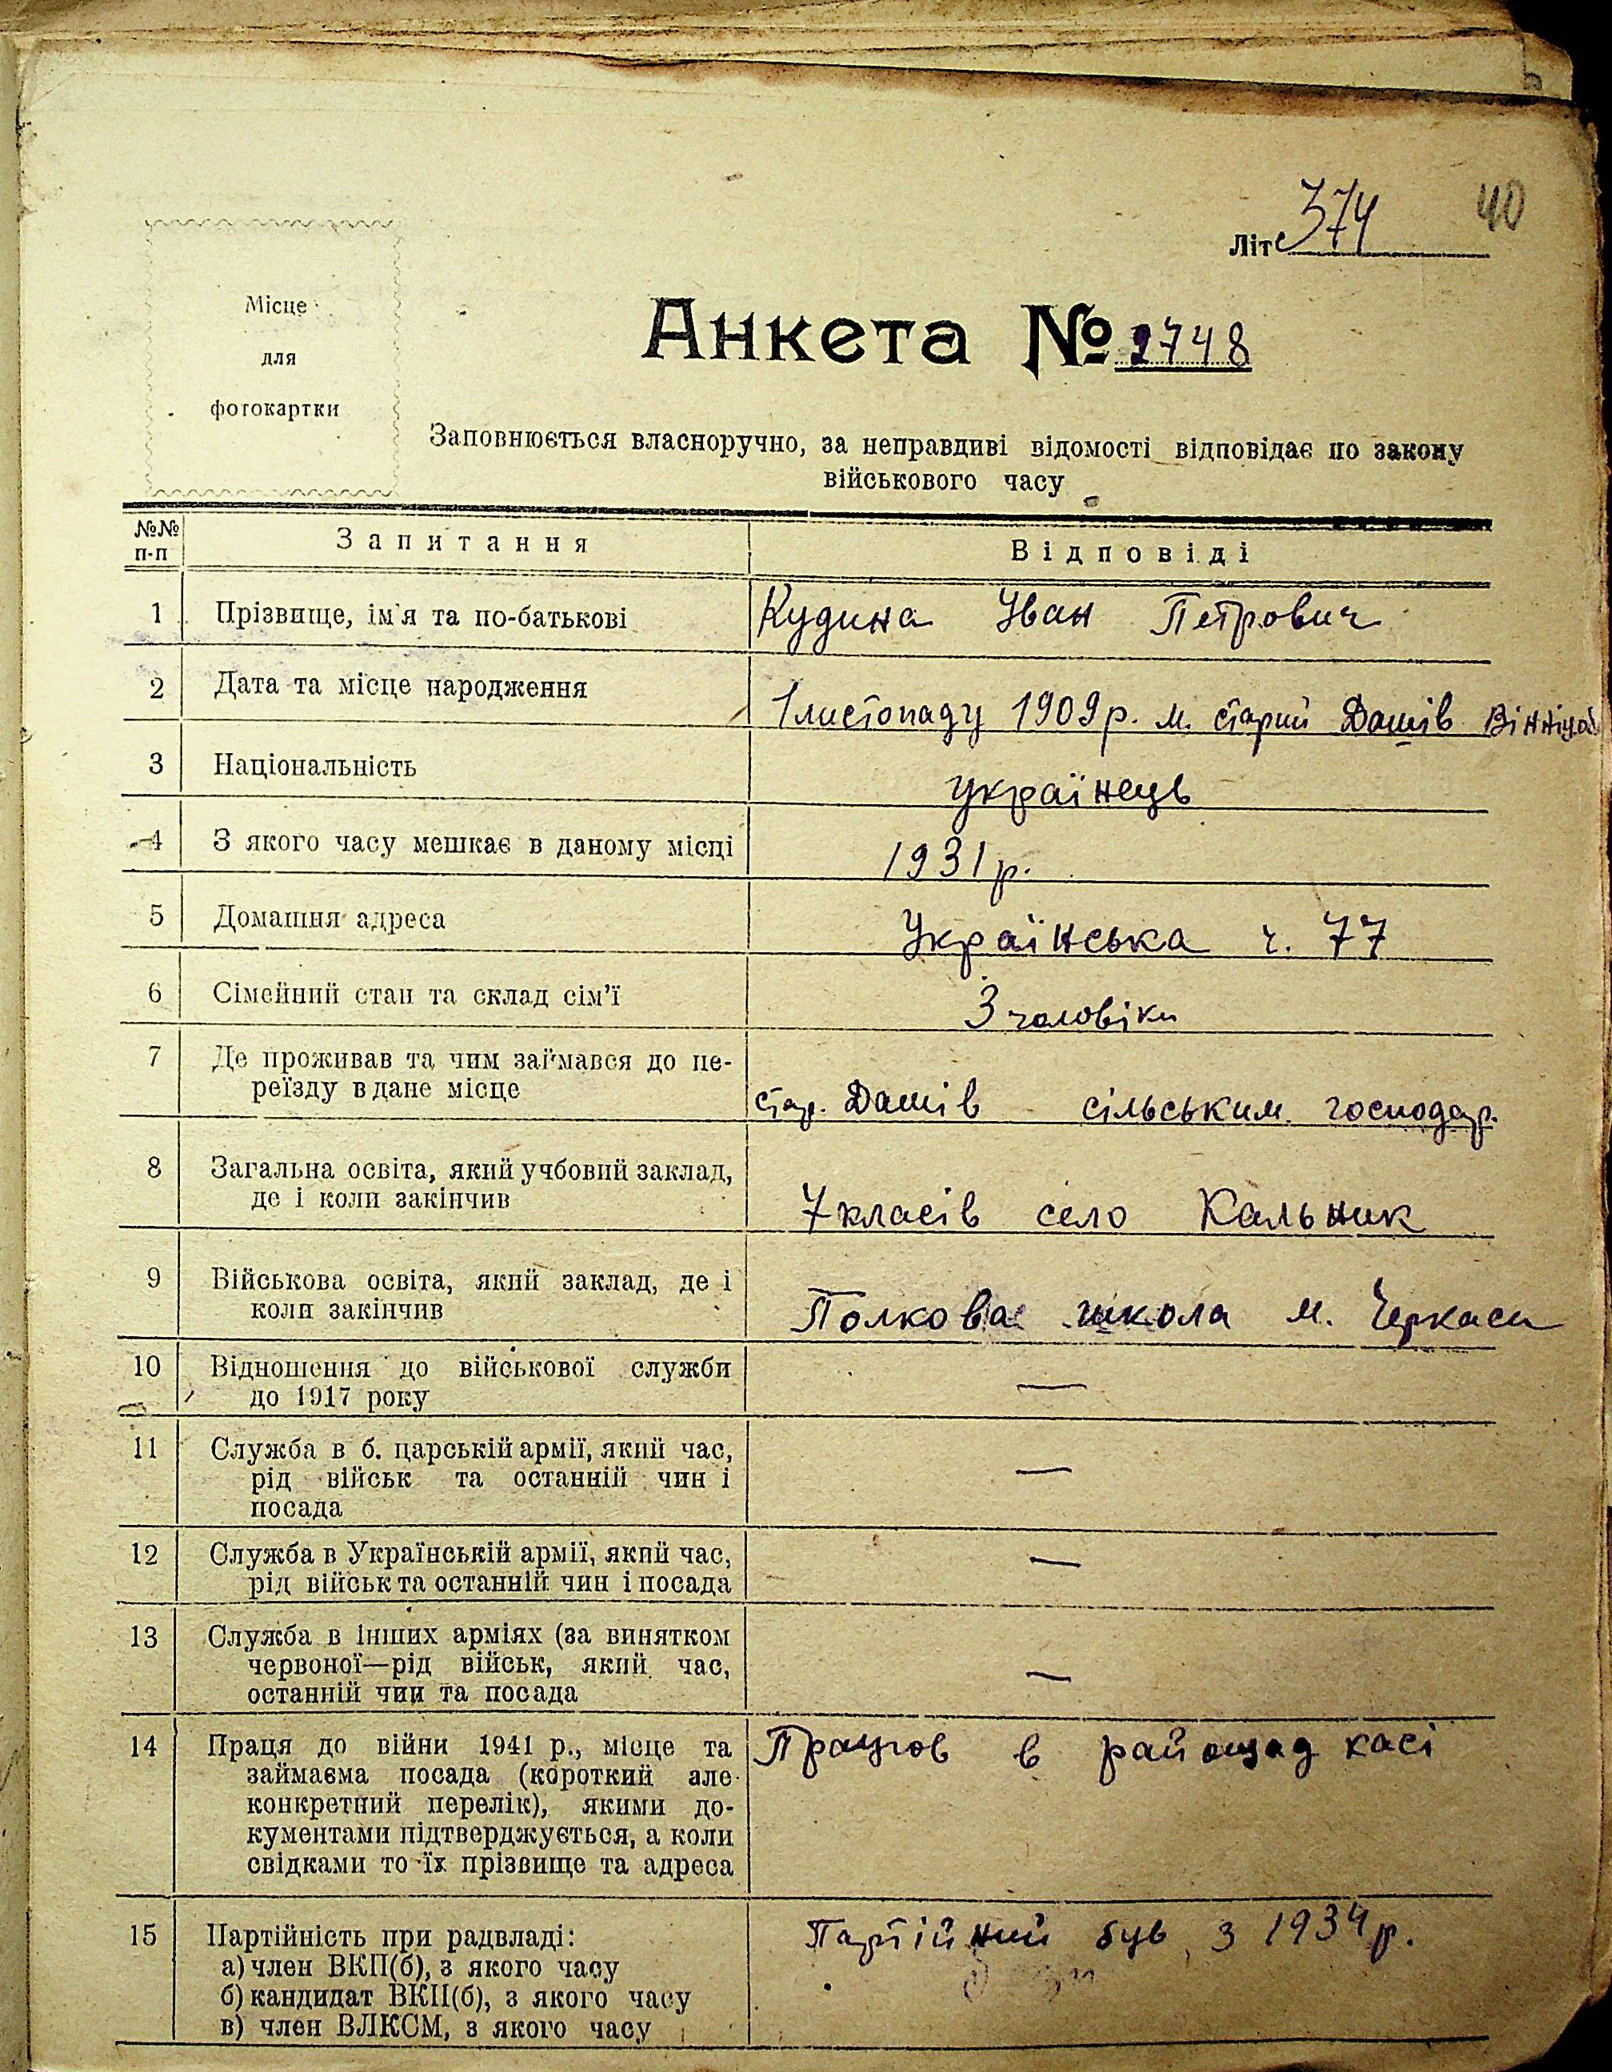 40
Літ 374
Місце
для
фотокартки
Анкета № 2748
Заповнюється власноручно, за неправдиві відомості відповідає по закону
військового часу
№№ п-п Запитання Відповіді
1 Прізвище, ім'я та по-батькові Кудина Іван Петрович
2 Дата та місце народження 1 листопаду 1909 р. м. старий Дашів Вінніц.об.
3 Національність українець
4 З якого часу мешкає в даному місці 1931 р.
5 Домашня адреса Українська ч. 77
6 Сімейний стан та склад сім'ї 3 чоловіки
7 Де проживав та чим займався до пе-
реїзду в дане місце стар. Дашів сільським. господар.
8 Загальна освіта, який учбовий заклад,
де і коли закінчив 7 класів село Кальник
9 Військова освіта, який заклад, де і
коли закінчив Полкова школа м. Черкаси
10 Відношення до військової служби
до 1917 року —
11 Служба в б. царській армії, який час,
рід військ та останній чин і —
посада
12 Служба в Українській армії, який час, —
рід військ та останній чин і посада
13 Служба в інших арміях (за винятком
червоної—рід військ, який час, —
останній чин та посада
14 Праця до війни 1941 р., місце та Працюв в райощад касі
займаєма посада (короткий але
конкретний перелік), якими до-
кументами підтверджується, а коли
свідками то їх прізвище та адреса
15 Партійність при радвладі: Партійний був з 1934 р.
а) член ВКП(б), з якого часу
б) кандидат ВКП(б), з якого часу
в) член ВЛКСМ, з якого часу